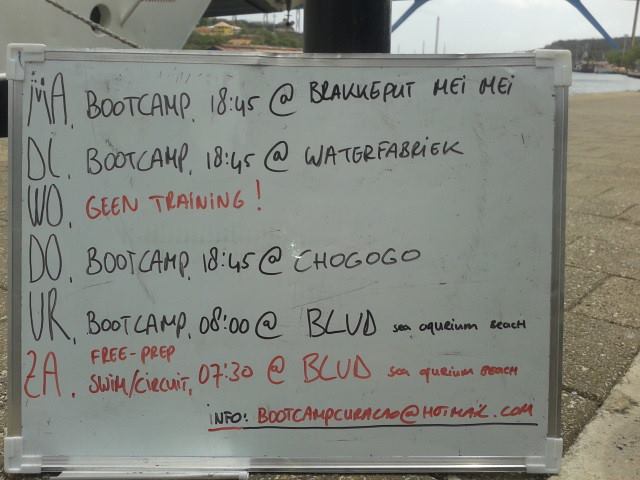 MA. BOOTCAMP. 18:45 @ BRAKKEPUT MEi MEi
DI. BOOTCAMP. 18:45 @ WATERFABRiEK
WO. GEEN TRAINING!
DO. BOOTCAMP. 18:45 @ CHOGOGO
VR. BOOTCAMP. 08:00 @ BLVD sea aqurium BEACH
FREE-PREP
ZA. SWIM/CIRCUIT, 07:30 @ BLVD sea aqurium BEACH
INFO: BOOTCAMPCURACAO@HOTMAIL.COM